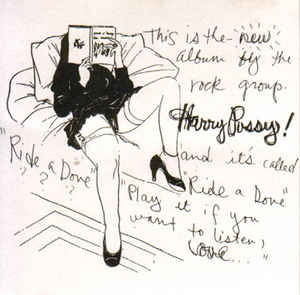 This is the new
album by the
rock group.
Harry Pussy!
and it's called
"Ride a Dove"
"Play it if you
want to listen,
Love..."
"Ride a
Dove"
? ? ?